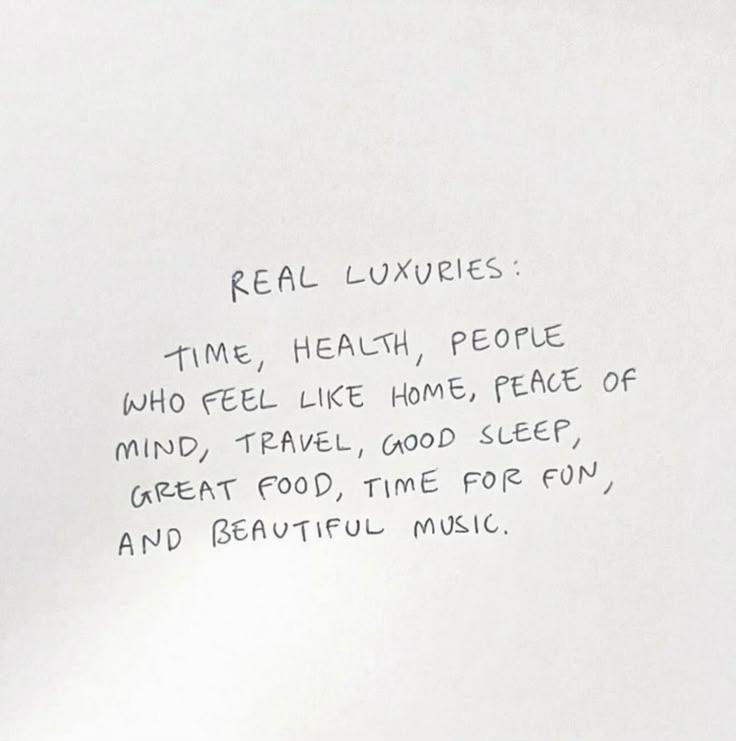 REAL LUXURIES:
TIME, HEALTH, PEOPLE
WHO FEEL LIKE HOME, PEACE OF
MIND, TRAVEL, GOOD SLEEP,
GREAT FOOD, TIME FOR FUN,
AND BEAUTIFUL MUSIC.